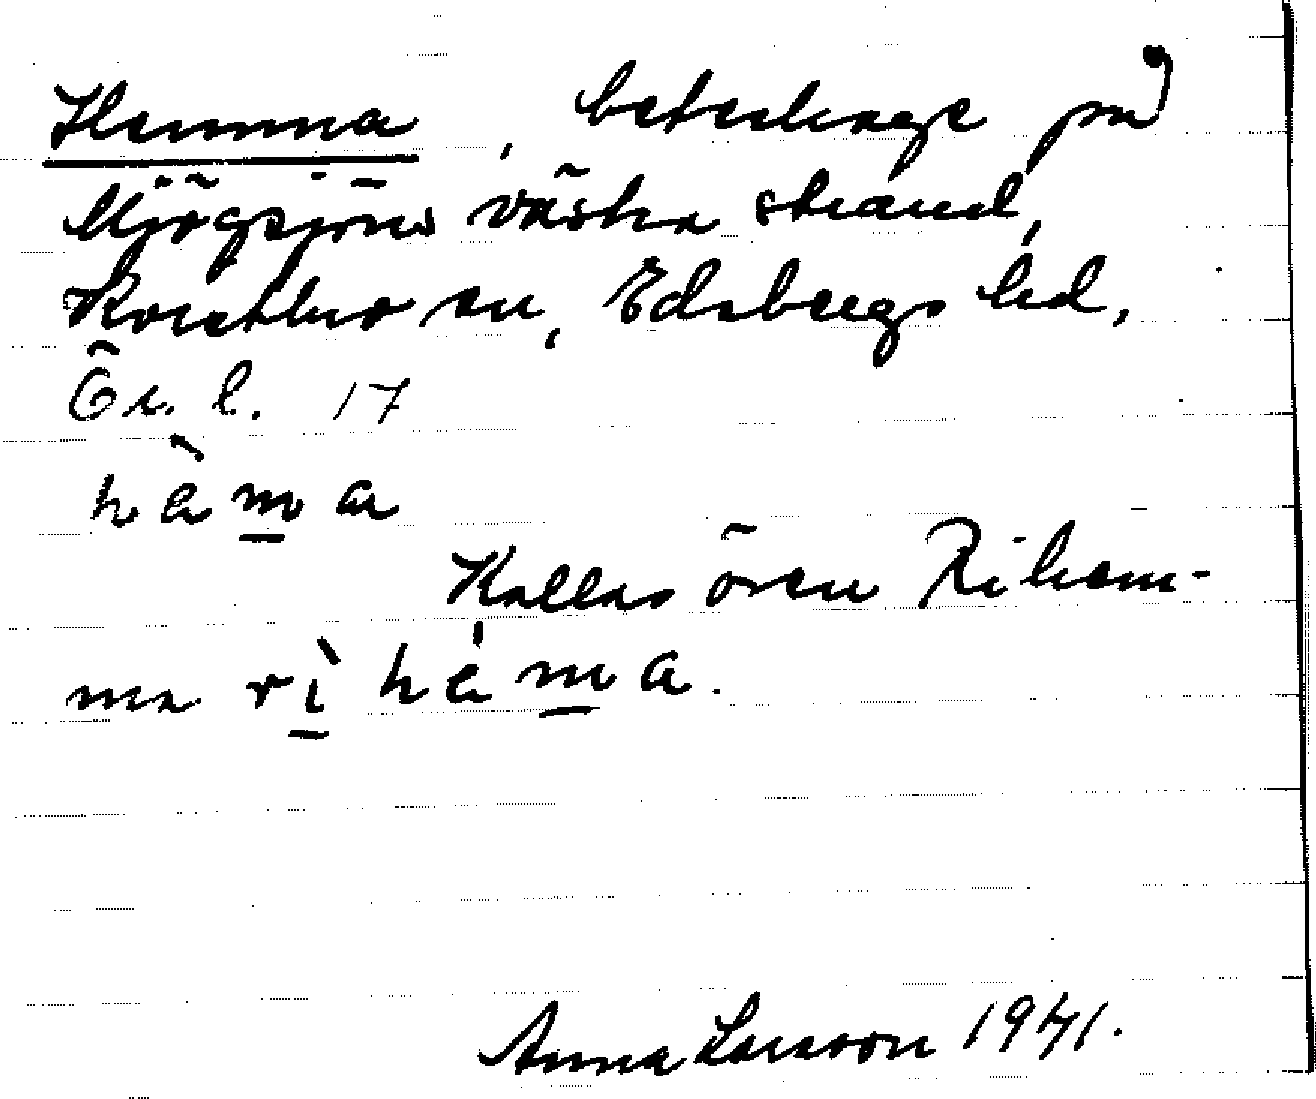 Hemma, beteshage på
Mjögsjöns västra strand,
Kvistbro sn, Edsbergs hd,
Ör. l. 17
hèma
Kallas även Rihem-
ma rìhéma.
Anna Larsson 1941.